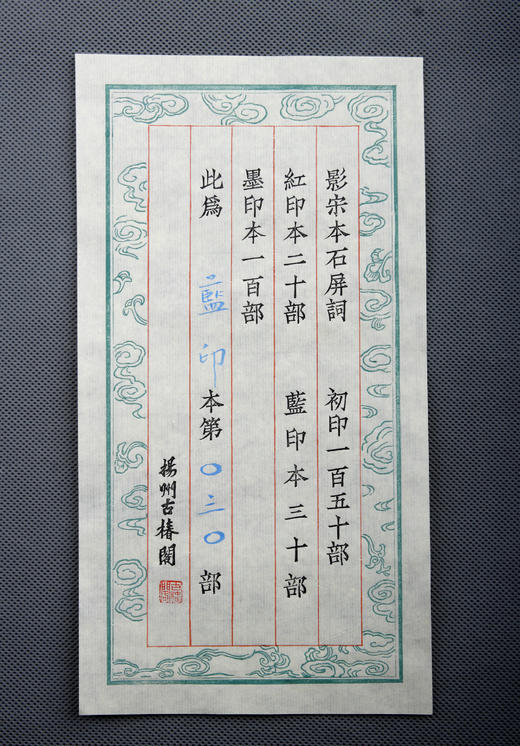 影宋本石屏詞 初印一百五十部
紅印本二十部 藍印本三十部
墨印本一百部
此爲藍印本第〇三〇部
揚州古椿閣